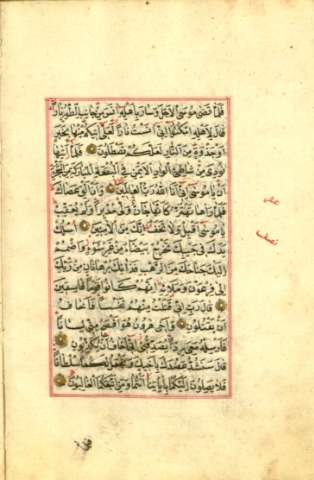 فَلَمَّا قَضٰى مُوسَى الْاَجَلَ وَسَارَ بِاَهْلِهٖ اٰنَسَ مِنْ جَانِبِ الطُّورِ نَارًا
قَالَ لِاَهْلِهِ امْكُثُوا اِنّٖى اٰنَسْتُ نَارًا لَعَلّٖى اٰتٖيكُمْ مِنْهَا بِخَبَرٍ
اَوْ جَذْوَةٍ مِنَ النَّارِ لَعَلَّكُمْ تَصْطَلُونَ فَلَمَّا اَتٰيهَا
نُودِىَ مِنْ شَاطِئِ الْوَادِ الْاَيْمَنِ فِى الْبُقْعَةِ الْمُبَارَكَةِ مِنَ الشَّجَرَةِ
اَنْ يَا مُوسٰى اِنّٖى اَنَا اللّٰهُ رَبُّ الْعَالَمٖينَ وَاَنْ اَلْقِ عَصَاكَ
فَلَمَّا رَاٰهَا تَهْتَزُّ كَاَنَّهَا جَانٌّ وَلّٰى مُدْبِرًا وَلَمْ يُعَقِّبْ
يَا مُوسٰى اَقْبِلْ وَلَا تَخَفْ اِنَّكَ مِنَ الْاٰمِنٖينَ اُسْلُكْ
يَدَكَ فٖى جَيْبِكَ تَخْرُجْ بَيْضَاءَ مِنْ غَيْرِ سُوءٍ وَاضْمُمْ
اِلَيْكَ جَنَاحَكَ مِنَ الرَّهْبِ فَذَانِكَ بُرْهَانَانِ مِنْ رَبِّكَ
اِلٰى فِرْعَوْنَ وَمَلَائِهٖ اِنَّهُمْ كَانُوا قَوْمًا فَاسِقٖينَ
قَالَ رَبِّ اِنّٖى قَتَلْتُ مِنْهُمْ نَفْسًا فَاَخَافُ
اَنْ يَقْتُلُونِ وَاَخٖى هٰرُونُ هُوَ اَفْصَحُ مِنّٖى لِسَانًا
فَاَرْسِلْهُ مَعِىَ رِدْءًا يُصَدِّقُنٖى اِنّٖى اَخَافُ اَنْ يُكَذِّبُونِ
قَالَ سَنَشُدُّ عَضُدَكَ بِاَخٖيكَ وَنَجْعَلُ لَكُمَا سُلْطَانًا
فَلَا يَصِلُونَ اِلَيْكُمَا بِاٰيَاتِنَا اَنْتُمَا وَمَنِ اتَّبَعَكُمَا الْغَالِبُونَ
نصف